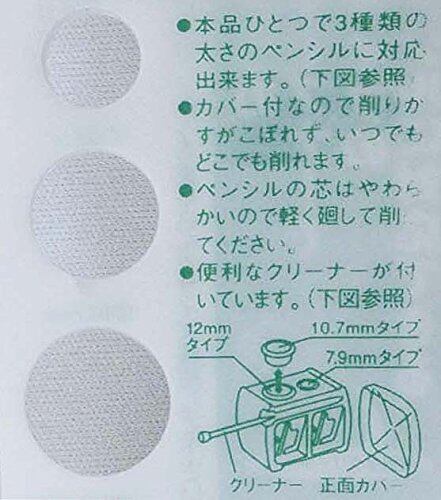 ●本品ひとつで3種類の
太さのペンシルに対応
出来ます。(下図参照
●カバー付なので削りか
すがこぼれず、いつでも
どこでも削れます。
●ペンシルの芯はやわら
かいので軽く廻して削っ
てください。
●便利なクリーナーが付
いています。(下図参照)
12mm
タイプ
10.7mmタイプ
7.9mmタイプ
クリーナー 正面カバー